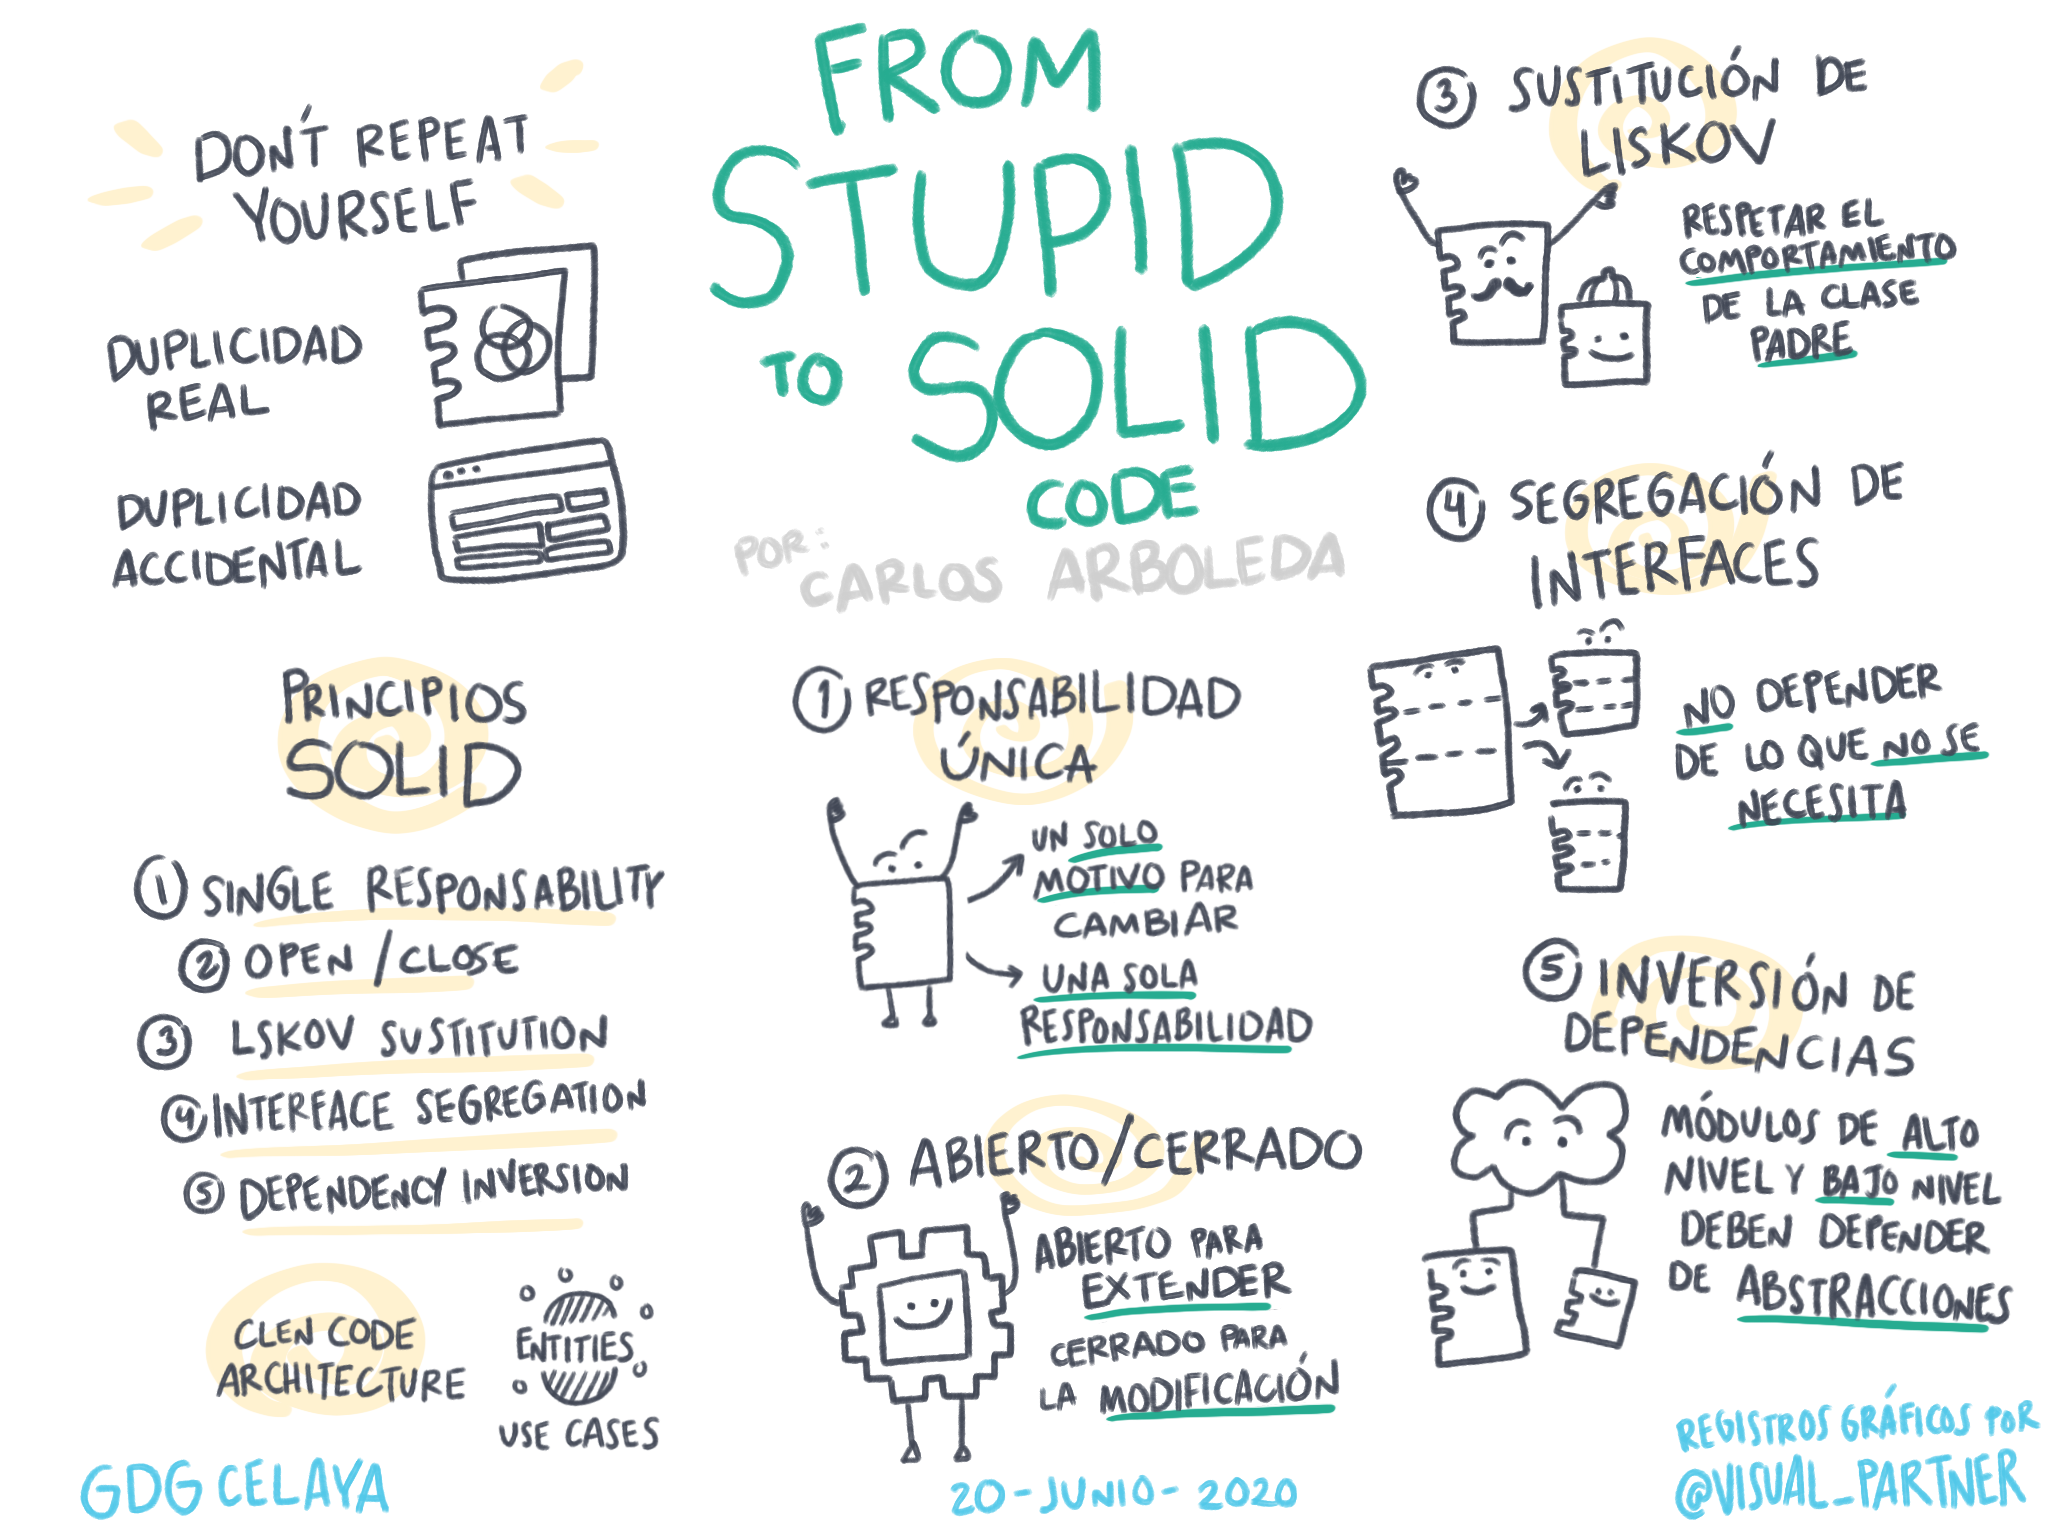 DON'T REPEAT
YOURSELF
DUPLICIDAD
REAL
DUPLICIDAD
ACCIDENTAL
PRINCIPIOS
SOLID
1 SINGLE RESPONSABILITY
2 OPEN / CLOSE
3 LSKOV SUSTITUTION
4 INTERFACE SEGREGATION
5 DEPENDENCY INVERSION
CLEN CODE
ARCHITECTURE
ENTITIES
USE CASES
GDG CELAYA
FROM
STUPID
TO SOLID
CODE
POR:
CARLOS ARBOLEDA
1 RESPONSABILIDAD
ÚNICA
UN SOLO
MOTIVO PARA
CAMBIAR
UNA SOLA
RESPONSABILIDAD
2 ABIERTO/CERRADO
ABIERTO PARA
EXTENDER
CERRADO PARA
LA MODIFICACIÓN
20-JUNIO-2020
3 SUSTITUCIÓN DE
LISKOV
RESPETAR EL
COMPORTAMIENTO
DE LA CLASE
PADRE
4 SEGREGACIÓN DE
INTERFACES
NO DEPENDER
DE LO QUE NO SE
NECESITA
5 INVERSIÓN DE
DEPENDENCIAS
MÓDULOS DE ALTO
NIVEL Y BAJO NIVEL
DEBEN DEPENDER
DE ABSTRACCIONES
REGISTROS GRÁFICOS POR
@VISUAL_PARTNER